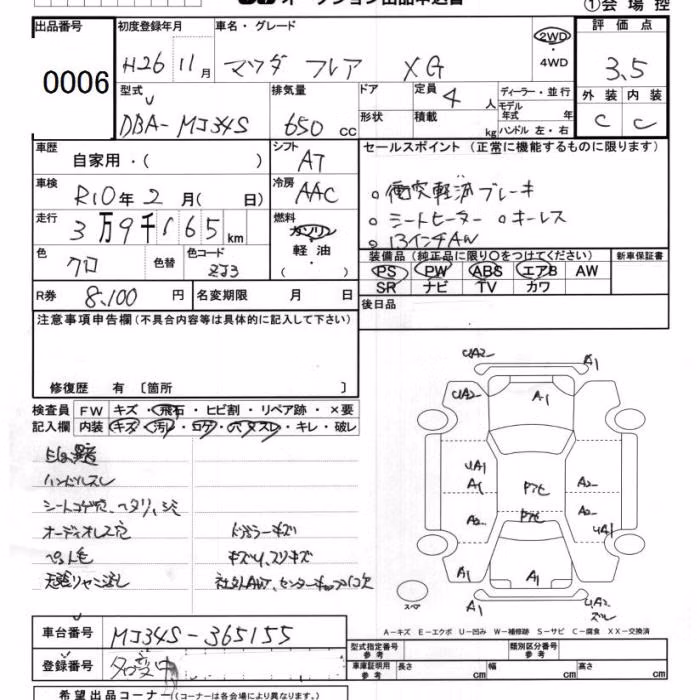 オークション出品申込書 ①会場控
出品番号 初度登録年月 車名・グレード 評価点
0006 H26 11月 マツダ フレア XG 2WD・4WD 3.5
型式 排気量 ドア 定員 4人 ディーラー・並行 外装 内装
DBA-MJ34S 650cc 形状 積載 kg モデル年式 年 ハンドル 左・右 C C
車歴 シフト セールスポイント(正常に機能するものに限ります)
自家用・( ) AT
車検 冷房 ○衝突軽減ブレーキ
R10年2月( 日) AAC ○シートヒーター ○キーレス
走行 燃料 ○13インチAW
3万9千165km ガソリン・軽油・
色 色替 色コード 装備品(純正品に限り○をつけてください) 新車保証書
クロ ZJ3 PS PW ABS エアB AW
SR ナビ TV カワ
R券 8,100円 名変期限 月 日 後日品
注意事項申告欄(不具合内容等は具体的に記入して下さい)
修復歴 有 〔箇所 〕
検査員 FW キズ・飛石・ヒビ割・リペア跡・×要
記入欄 内装 キズ・汚レ・コゲ・穴・スレ・キレ・破レ
ハンドルスレ
シートコゲ穴、ヘタリ、シミ
オーディオレス穴 ドバラーキズ
ペット毛 キズU、スリキズ
社外AW、センターキャップ1コ欠
UA2 A1
UA2 A1
UA1
A1 Pアヒ A2
A2 Pアヒ A2
UA1
A1 A1
A1 UA2
スペア スレ
A-キズ E-エクボ U-凹み W-補修跡 S-サビ C-腐食 XX-交換済
車台番号 MJ34S-365155
型式指定番号 参考 類別区分番号 参考
登録番号 名変中 車庫証明用 参考 長さ cm 幅 cm 高さ cm
希望出品コーナー(コーナーは各会場により異なります。)